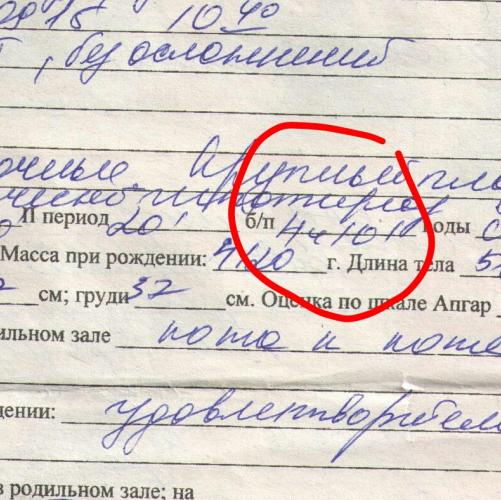 2015 10 40
, без осложнений
Крупный пло
II период 20' б/п 4ч 10' роды с
Масса при рождении: 4120 г. Длина тела 5
см; груди 32 см. Оценка по шкале Апгар
дильном зале кожа к коже
дении: удовлетворител
в родильном зале; на